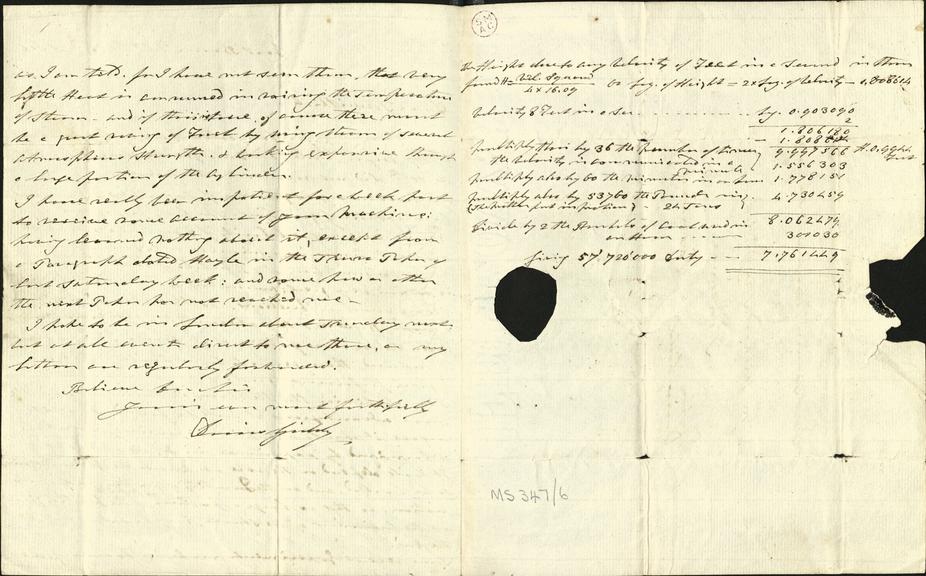 as I am told, for I have not seen them, that very
little Heat is consumed in raising the Temperature
of Steam - and if this is true, of course there must
be a great saving of Fuel by using steam of several
Atmospheres strength, & working expansive through
a large portion of the Cylinder.
I have really been impatient for a week past
to receive some account of your Machine;
having learned nothing about it, except from
a Paragraph dated Hayle in the Truro Paper of
last Saturday week: and some how or other
the next Paper has not reached me -
I hope to be in London about Tuesday next
but at all events direct to me there, as my
letters are regularly forwarded.
Believe
Yours ever most faithfully
Davies Giddy
SM
AG
Heights due to any Velocity of Feet in a second is then
found H = Vel. Squared / 4 x 16.09 Or Log. of Height = 2 x Log. of Velocity - 1.808614
Velocity 8 Feet in a Sec. Log. 0.903090
2
1.806180
1.8086
9.997566 H. 0.9944
Feet
Multiply this by 36 the number of times
the Velocity is communicated in a 1.556303
minute
Multiply also by 60 the minutes in an hour 1.778151
Multiply also by 53760 the Pounds 4.730459
24 Tons
8.062479
Divide by 2 the Bushels of Coal used in
an Hour 301030
giving 57'720'000 Duty 7.761449
MS 347/6